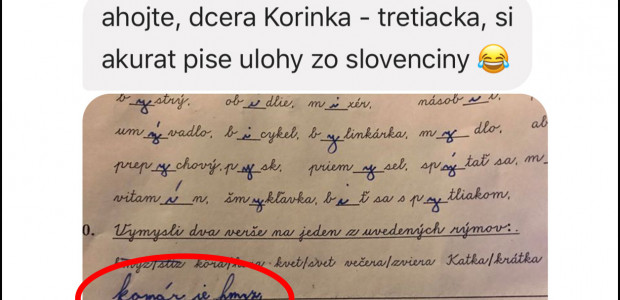 ahojte, dcera Korinka - tretiacka, si
akurat pise ulohy zo slovenciny 😂
bystrý, obidlie, mixér, násob
umývadlo, bicykel, bylinkárka, mydlo, ab
prepychový, pysk, priemysel, spýtať sa, m
vitamín, žmykľavka, biť sa s pytliakom,
0. Vymysli dva verše na jeden z uvedených rýmov:
hmyz/stiz kôra/hora kvet/svet večera/zviera Katka/krátka
komár je hmyz